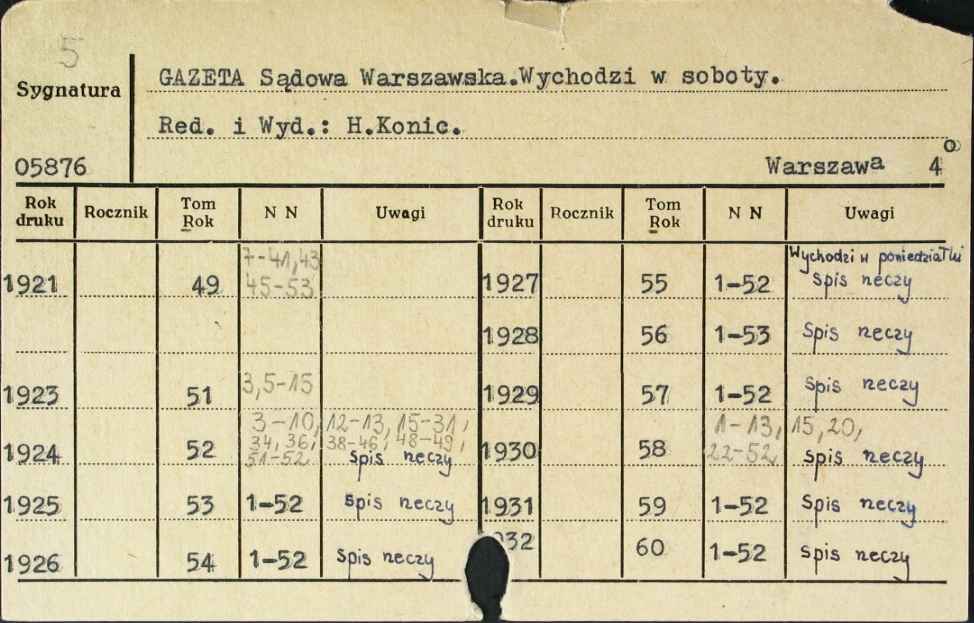 5
Sygnatura
GAZETA Sądowa Warszawska.Wychodzi w soboty.
Red. i Wyd.: H.Konic.
05876
Warszawa 4°
Rok druku Rocznik Tom Rok N N Uwagi Rok druku Rocznik Tom Rok N N Uwagi
7-41,43 Wychodzi w poniedziałki
1921 49 45-53 1927 55 1-52 Spis rzeczy
1928 56 1-53 Spis rzeczy
1923 51 3,5-15 1929 57 1-52 Spis rzeczy
3-10, 12-13, 15-31, 1-13, 15,20,
34, 36, 38-46, 48-49,
1924 52 51-52 Spis rzeczy 1930 58 22-52 Spis rzeczy
1925 53 1-52 Spis rzeczy 1931 59 1-52 Spis rzeczy
1926 54 1-52 Spis rzeczy 932 60 1-52 Spis rzeczy